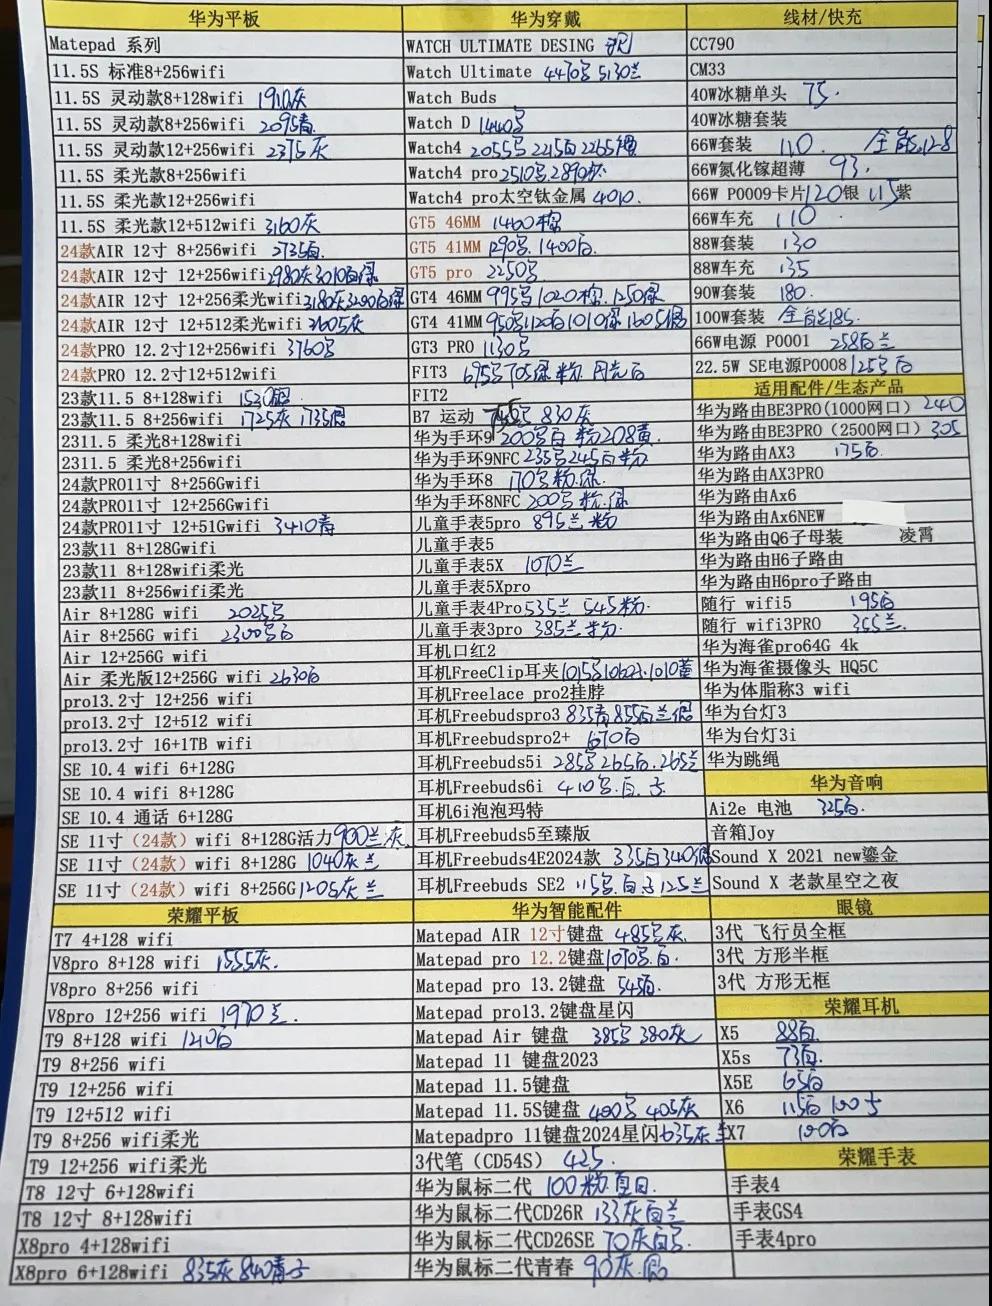 华为平板
Matepad 系列
11.5S 标准8+256wifi
11.5S 灵动款8+128wifi 1910灰
11.5S 灵动款8+256wifi 2095青
11.5S 灵动款12+256wifi 2375灰
11.5S 柔光款8+256wifi
11.5S 柔光款12+256wifi
11.5S 柔光款12+512wifi 3160灰
24款AIR 12寸 8+256wifi 2735白
24款AIR 12寸 12+256wifi 2980灰3010白绿
24款AIR 12寸 12+256柔光wifi 3180灰3290白绿
24款AIR 12寸 12+512柔光wifi 3605灰
24款PRO 12.2寸12+256wifi 3760
24款PRO 12.2寸12+512wifi
23款11.5 8+128wifi 1520
23款11.5 8+256wifi 1725灰 1735
2311.5 柔光8+128wifi
2311.5 柔光8+256wifi
24款PRO11寸 8+256Gwifi
24款PRO11寸 12+256Gwifi
24款PRO11寸 12+51Gwifi 3410青
23款11 8+128Gwifi
23款11 8+128wifi柔光
23款11 8+256wifi柔光
Air 8+128G wifi 2025
Air 8+256G wifi 2300 白
Air 12+256G wifi
Air 柔光版12+256G wifi 2630白
pro13.2寸 12+256 wifi
pro13.2寸 12+512 wifi
pro13.2寸 16+1TB wifi
SE 10.4 wifi 6+128G
SE 10.4 wifi 8+128G
SE 10.4 通话 6+128G
SE 11寸（24款）wifi 8+128G活力 900兰灰
SE 11寸（24款）wifi 8+128G 1040灰兰
SE 11寸（24款）wifi 8+256G 1205灰兰
荣耀平板
T7 4+128 wifi
V8pro 8+128 wifi 1555灰.
V8pro 8+256 wifi
V8pro 12+256 wifi 1970兰.
T9 8+128 wifi 1210白
T9 8+256 wifi
T9 12+256 wifi
T9 12+512 wifi
T9 8+256 wifi柔光
T9 12+256 wifi柔光
T8 12寸 6+128wifi
T8 12寸 8+128wifi
X8pro 4+128wifi
X8pro 6+128wifi 835灰840青
华为穿戴
WATCH ULTIMATE DESING
Watch Ultimate 4470 5130兰
Watch Buds
Watch D 1440
Watch4 2055 2215白2265
Watch4 pro 2510 2890棕
Watch4 pro太空钛金属 4010.
GT5 46MM 1460棕
GT5 41MM 1290 1400白
GT5 pro 2250
GT4 46MM 995 1020棕.1250绿
GT4 41MM 950 1120白1010绿1605
GT3 PRO 1130
FIT3 695 705绿粉
FIT2
B7 运动 830灰
华为手环9 200 白 粉208黄.
华为手环9NFC 235 245白粉
华为手环8 170 粉.绿.
华为手环8NFC 200 粉.绿
儿童手表5pro 895兰粉
儿童手表5
儿童手表5X 1070兰
儿童手表5Xpro
儿童手表4Pro 535兰 545粉.
儿童手表3pro 385兰粉.
耳机口红2
耳机FreeClip耳夹
耳机Freelace pro2挂脖
耳机Freebudspro3 835青855白兰
耳机Freebudspro2+ 670白
耳机Freebuds5i 285 265白.265兰
耳机Freebuds6i 410 .白.
耳机6i泡泡玛特
耳机Freebuds5至臻版
耳机Freebuds4E2024款 335白340
耳机Freebuds SE2 115 .白 125兰
华为智能配件
Matepad AIR 12寸键盘 485 灰.
Matepad pro 12.2键盘 1070 .白.
Matepad pro 13.2键盘 545
Matepad pro13.2键盘星闪
Matepad Air 键盘 385 380灰
Matepad 11 键盘2023
Matepad 11.5键盘
Matepad 11.5S键盘 400 405灰
Matepadpro 11键盘2024星闪 635灰
3代笔（CD54S） 425.
华为鼠标二代 100粉
华为鼠标二代CD26R 133灰白兰
华为鼠标二代CD26SE 70灰白
华为鼠标二代青春 90灰.
线材/快充
CC790
CM33
40W冰糖单头 75.
40W冰糖套装
66W套装 110 全能128
66W氮化镓超薄 93.
66W P0009卡片 120银 115紫
66W车充 110
88W套装 130
88W车充 135
90W套装 180.
100W套装 全能185.
66W电源 P0001 258白兰
22.5W SE电源P0008 125 白
适用配件/生态产品
华为路由BE3PRO(1000网口) 240
华为路由BE3PRO（2500网口) 305
华为路由AX3 175白.
华为路由AX3PRO
华为路由Ax6
华为路由Ax6NEW
华为路由Q6子母装 凌霄
华为路由H6子路由
华为路由H6pro子路由
随行 wifi5 195白
随行 wifi3PRO 355兰.
华为海雀pro64G 4k
华为海雀摄像头 HQ5C
华为体脂称3 wifi
华为台灯3
华为台灯3i
华为跳绳
华为音响
Ai2e 电池 325白.
音箱Joy
Sound X 2021 new鎏金
Sound X 老款星空之夜
眼镜
3代 飞行员全框
3代 方形半框
3代 方形无框
荣耀耳机
X5 88白.
X5s 73白.
X5E 65白
X6 115白 100
X7 100白
荣耀手表
手表4
手表GS4
手表4pro